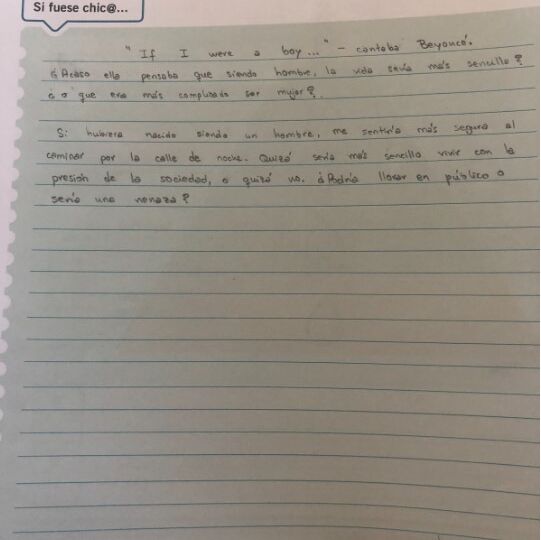 Si fuese chic@...
"If I were a boy..." - cantaba Beyoncé.
¿Acaso ella pensaba que siendo hombre, la vida sería más sencilla?
¿o que era más complicado ser mujer?
Si hubiera nacido siendo un hombre, me sentiría más segura al
caminar por la calle de noche. Quizá sería más sencillo vivir con la
presión de la sociedad, o quizá no. ¿Podría llorar en público o
sería una nenaza?